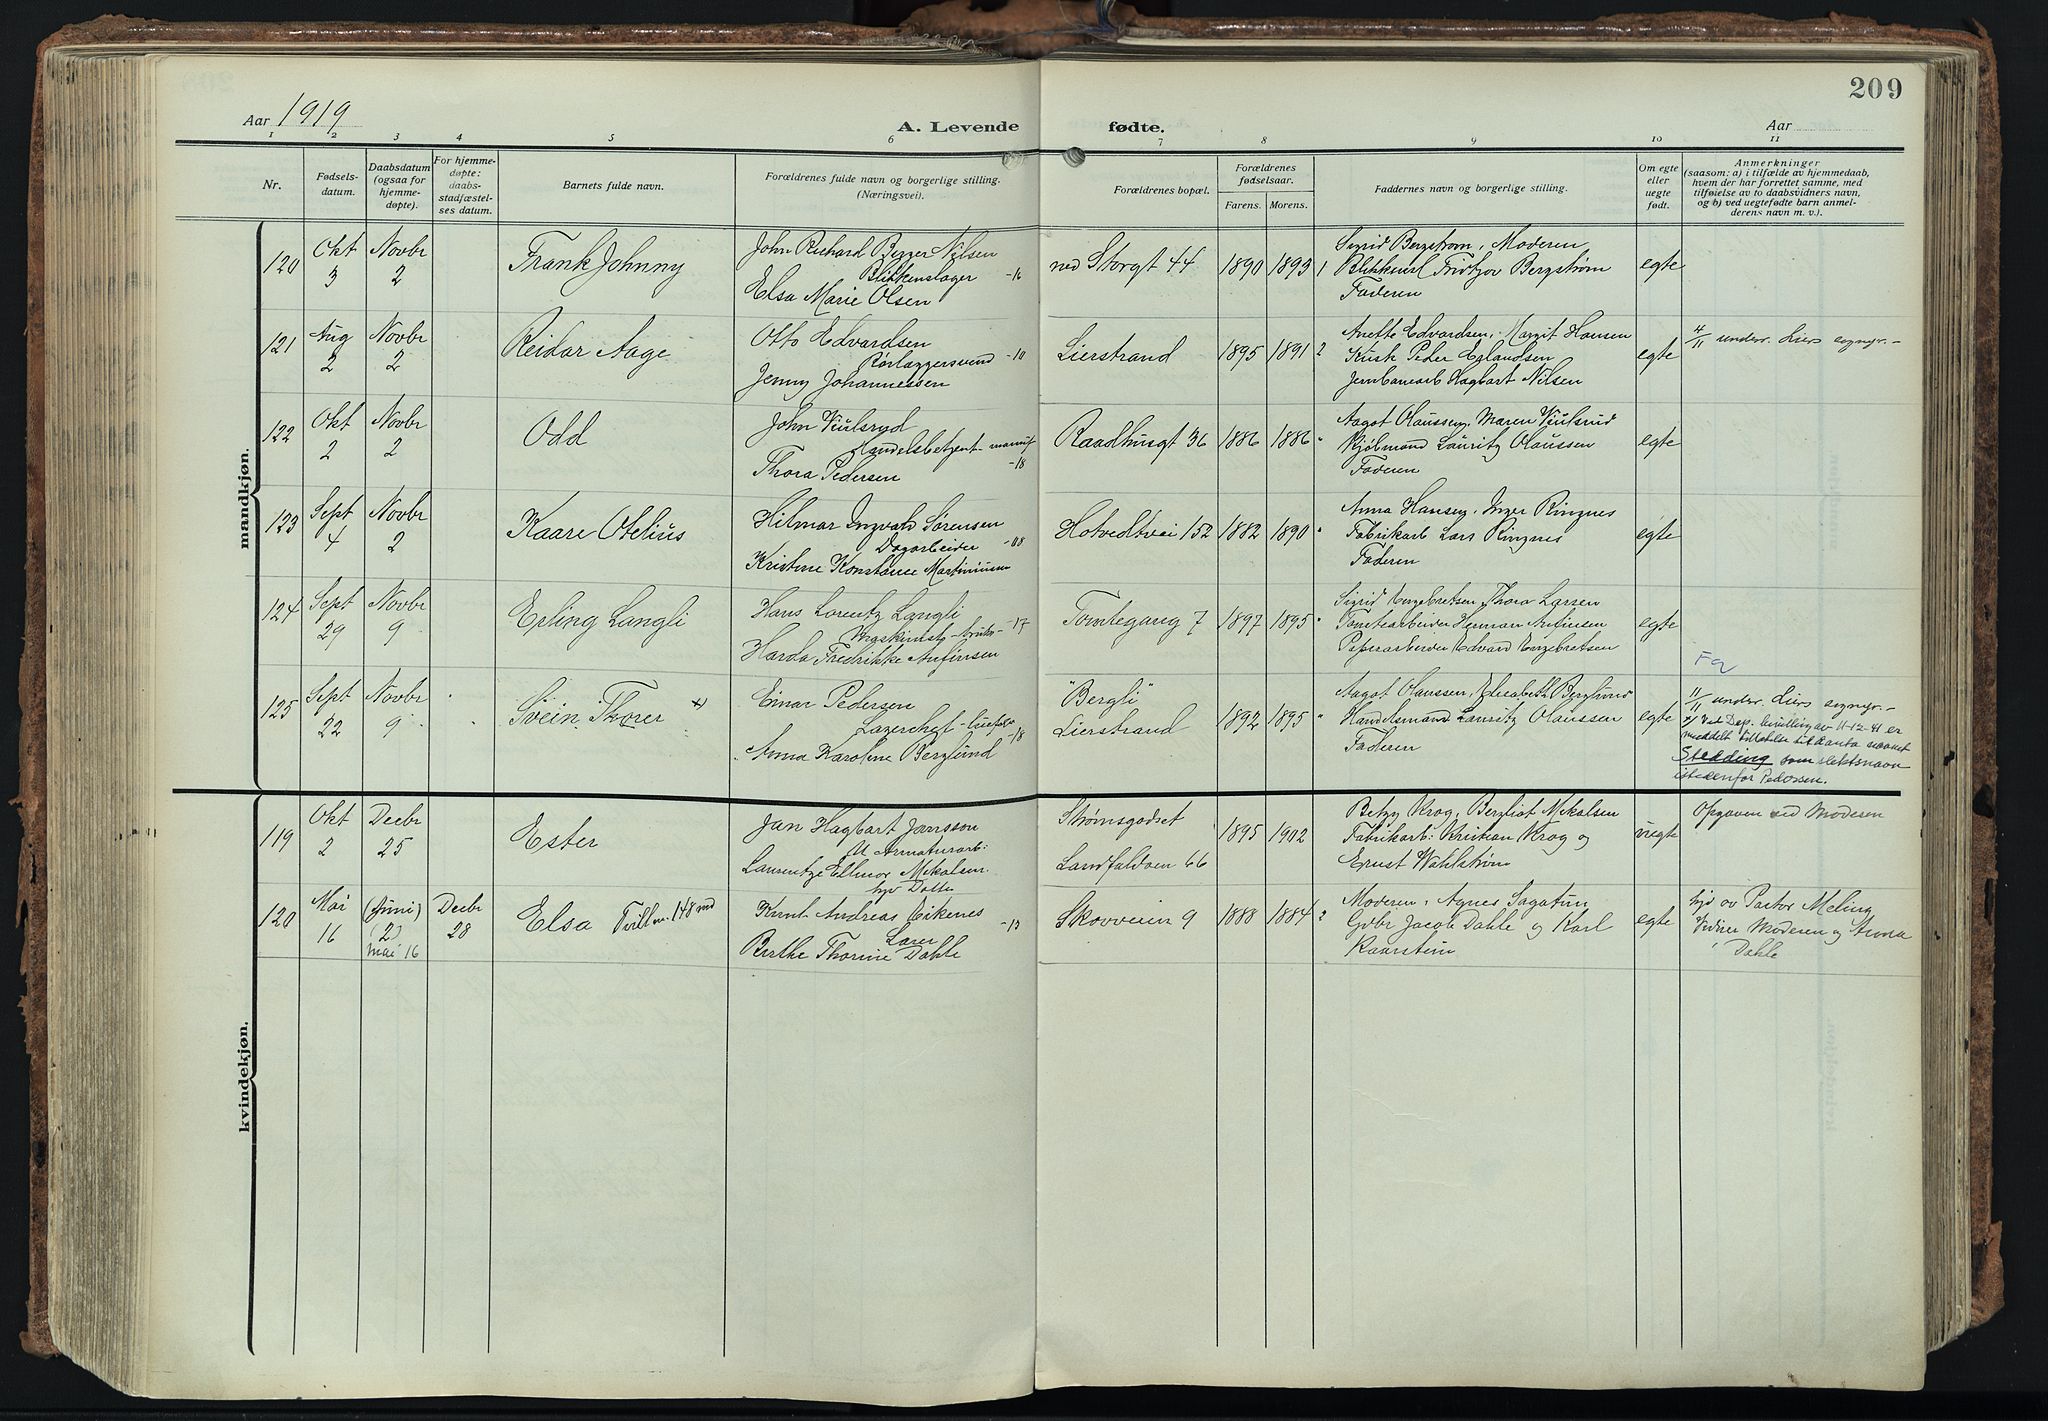 209
Aar 1919
A. Levende fødte.
Aar
1 2 3 4 5 6 7 8 9 10 11
Nr.
Fødsels-
datum.
Daabsdatum
(ogsaa for
hjemme-
døpte).
For hjemme-
døpte:
daabs-
stadfæstel-
ses datum.
Barnets fulde navn.
Forældrenes fulde navn og borgerlige stilling.
(Næringsvei).
Forældrenes bopæl.
Forældrenes
fødselsaar.
Farens. Morens.
Faddernes navn og borgerlige stilling.
Om egte
eller
uegte
født.
Anmerkninger
(saasom: a) i tilfælde av hjemmedaab,
hvem der har forrettet samme, med
tilføielse av to daabsvidners navn,
og b) ved uegtefødte barn anmel-
derens navn m. v.).
mandkjøn.
120
Okt
3
Novbr
2
Frank Johnny
John Richard Nilsen
Blikkenslager -16
Elsa Marie Olsen
ned Storgt 44
1890 1893 1
Sigrid Bergstrøm, Moderen
Fridtjov Bergstrøm
Faderen
egte
121
Aug
2
Novbr
2
Reidar Aage
Otto Edvardsen
Rørlæggersvend -10
Jenny Johannessen
Lierstrand
1895 1891 2
Anette Edvardsen, Margit Hansen
Kusk Peder Eglandsen
Jernbanearb Hagbart Nilsen
egte
4/11 underr. Liers sognepr. -
122
Okt
2
Novbr
2
Odd
John Viulsrud
Handelsbetjent - manuf
-18
Thora Pedersen
Raadhusgt 36
1886 1886 "
Aagot Olaussen, Maren Viulsrud
Kjøbmand Lauritz Olaussen
Faderen
egte
123
Sept
4
Novbr
2
Kaare Otelius
Hilmar Ingvald Sørensen
Dagarbeider -08
Kristine Konstance Martiniusen
Hotvedtvei 152
1882 1890 "
Anna Hansen, Inger Ringnes
Fabrikarb Lars Ringnes
Faderen
egte
124
Sept
29
Novbr
9
Erling Langli
Hans Lorentz Langli
-17
Harda Fredrikke Anfinsen
Tomtegang 7
1897 1895 "
Sigrid Engebretsen, Thora Larsen
Tomtearbeider Herman Anfinsen
Papirarbeider Edvard Engebretsen
egte
125
Sept
22
Novbr
9
Svein Thorer x)
Einar Pedersen
-18
Anna Karoline Berglund
"Bergli"
Lierstrand
1892 1895 "
Aagot Olaussen, Elisabeth Berglund
Handelsmand Lauritz Olaussen
Faderen
egte
11/11 underr. Liers sognepr. -
x) Ved Dep. bevilling av 11-12-41 er
meddelt tillatelse til å anta navnet
Stedding som slektsnavn
istedenfor Pedersen.
kvindekjøn.
119
Okt
2
Decbr
25
Ester
Jan Hagbart Jansson
Armaturarb:
Laurentze Ellinor Mikalsen
Strømsgodset
Landfaldøen 66
1895 1902
Betzy Krog, Bergliot Mikalsen
Fabrikarb: Kristian Krog og
Ernst Wahlstrøm
uegte
Opgaven ved Moderen
120
Mai
16
(Juni)
(2)
mai 16
Decbr
28
Elsa Tvilling 148 md
Knut Andreas Eikenes
Lærer -13
Berthe Thorine Dahle
Skovveien 9
1888 1884 2
Moderen, Agnes Sagatun
Gdbr Jacob Dahle og Karl
Kaarstein
egte
hjd av Pastor Meling
Vidner Moderen og Anna
Dahle